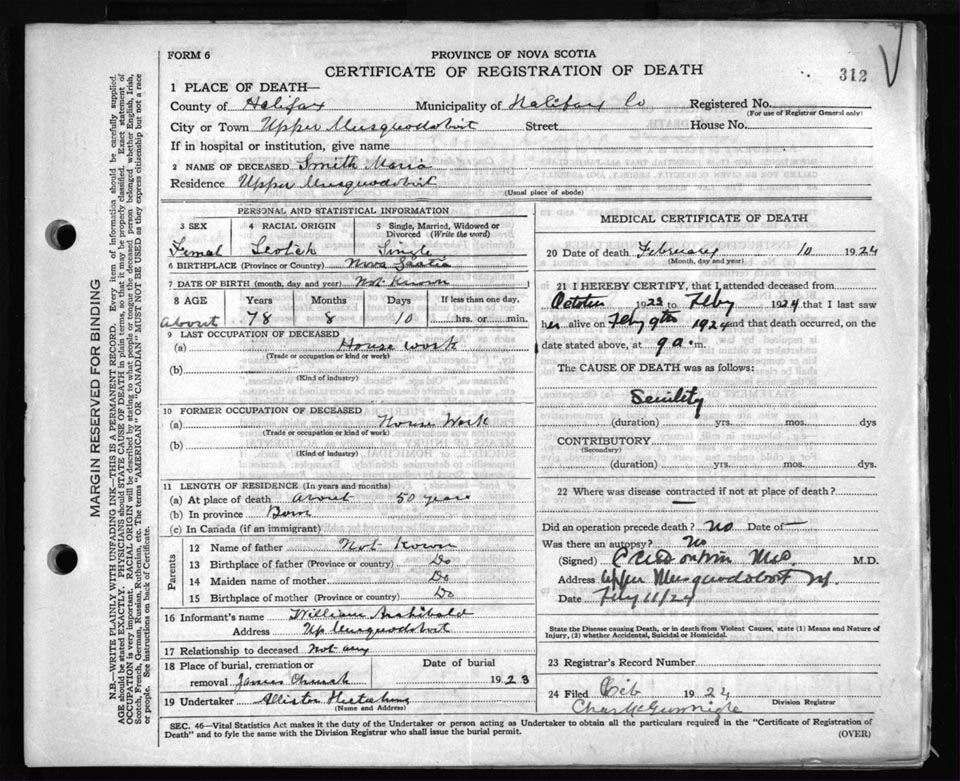 FORM 6
PROVINCE OF NOVA SCOTIA
CERTIFICATE OF REGISTRATION OF DEATH
312
1 PLACE OF DEATH—
County of Halifax Municipality of Halifax Co Registered No.
(For use of Registrar General only)
City or Town Upper Musquodobit Street House No.
If in hospital or institution, give name
2 NAME OF DECEASED Smith Maria
Residence Upper Musquodobit
(Usual place of abode)
PERSONAL AND STATISTICAL INFORMATION
3 SEX 4 RACIAL ORIGIN 5 Single, Married, Widowed or Divorced (Write the word)
Femal Scotch Single
6 BIRTHPLACE (Province or Country) Nova Scotia
7 DATE OF BIRTH (month, day and year) Not Known
8 AGE Years Months Days If less than one day,
About 78 8 10 hrs. or min.
9 LAST OCCUPATION OF DECEASED
(a) House work
(Trade or occupation or kind or work)
(b)
(Kind of industry)
10 FORMER OCCUPATION OF DECEASED
(a) House Work
(Trade or occupation or kind or work)
(b)
(Kind of industry)
11 LENGTH OF RESIDENCE (In years and months)
(a) At place of death About 50 years
(b) In province Born
(c) In Canada (if an immigrant)
Parents
12 Name of father Not Kown
13 Birthplace of father (Province or country) Do
14 Maiden name of mother Do
15 Birthplace of mother (Province or country) Do
16 Informant's name William Archibald
Address Up Musquodobit
17 Relationship to deceased Not any
18 Place of burial, cremation or Date of burial
removal James Church 1923
19 Undertaker
(Name and Address)
MEDICAL CERTIFICATE OF DEATH
20 Date of death February 10 1924
(Month, day and year)
21 I HEREBY CERTIFY, that I attended deceased from
October 1923 to Feby 1924 that I last saw
her alive on Feby 9th 1924 and that death occurred, on
date stated above, at 9 a.m.
The CAUSE OF DEATH was as follows:
Senility
(duration) yrs. mos. dys
CONTRIBUTORY
(Secondary)
(duration) yrs. mos. dys.
22 Where was disease contracted if not at place of death?
—
Did an operation precede death? No Date of —
Was there an autopsy? No
(Signed) M.D.
Address Upper Musquodoboit NS
Date Feby 11/24
State the Disease causing Death, or in death from Violent Causes, state (1) Means and Nature of
Injury, (2) whether Accidental, Suicidal or Homicidal.
23 Registrar's Record Number
24 Filed 1924
Division Registrar
SEC. 46—Vital Statistics Act makes it the duty of the Undertaker or person acting as Undertaker to obtain all the particulars required in the "Certificate of Registration of
Death" and to fyle the same with the Division Registrar who shall issue the burial permit. (OVER)
MARGIN RESERVED FOR BINDING
N.B.—WRITE PLAINLY WITH UNFADING INK—THIS IS A PERMANENT RECORD. Every item of information should be carefully supplied.
AGE should be stated EXACTLY. PHYSICIANS should STATE CAUSE OF DEATH in plain terms, so that it may be properly classified. Exact statement of
OCCUPATION is very important. RACIAL ORIGIN will be described by stating to what people or tongue the deceased person belonged whether English, Irish,
Scotch, French, German, Russian, Ruthenian, etc. The terms "AMERICAN" OR "CANADIAN" MUST NOT BE USED as they express citizenship but not a race
or people. See instructions on back of Certificate.